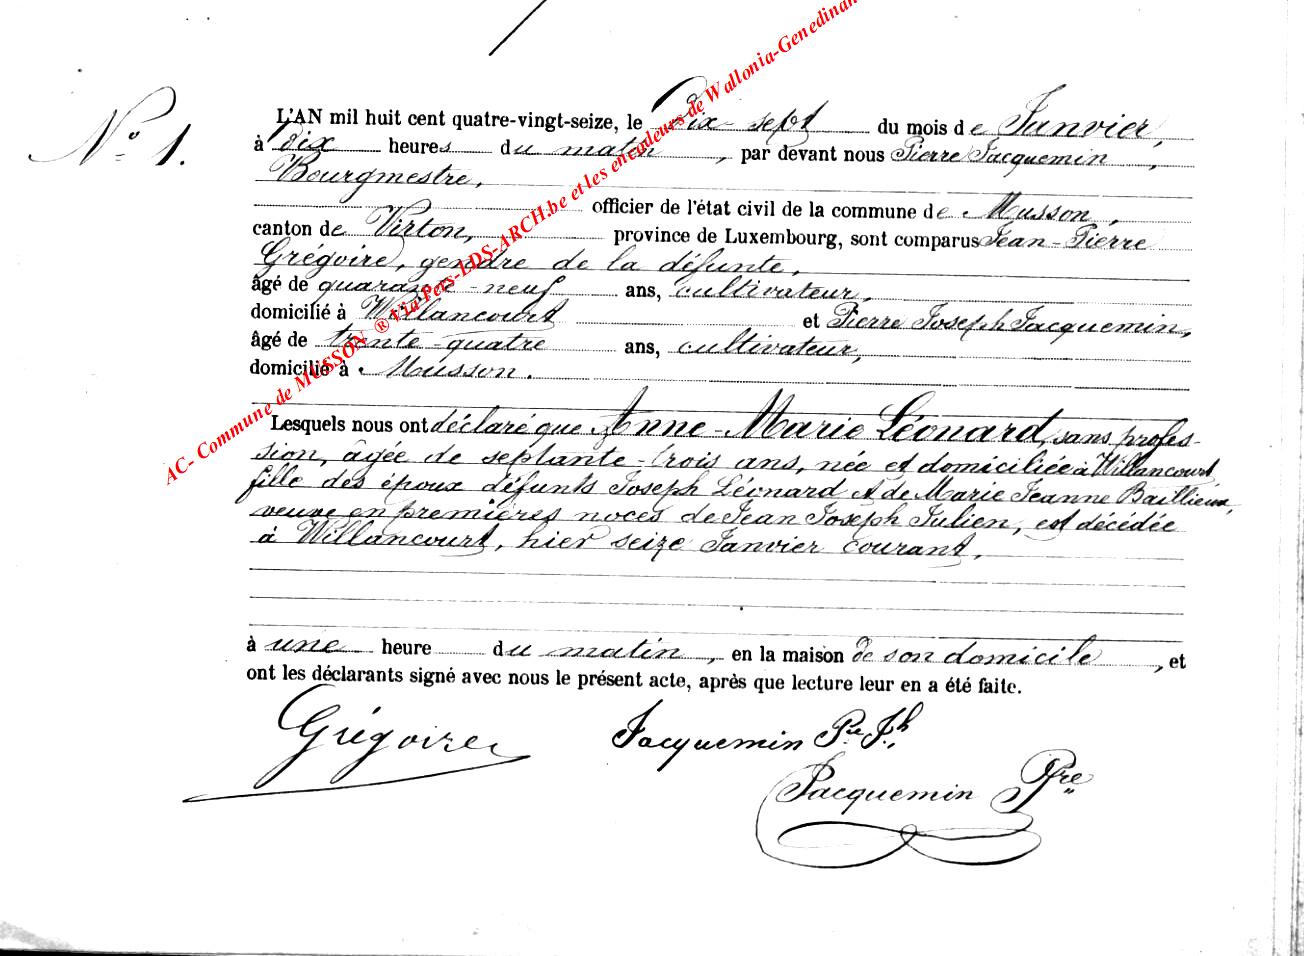 N.º 1.
L'AN mil huit cent quatre-vingt-seize, le Dix-sept du mois de Janvier,
à dix heures du matin, par devant nous Pierre Jacquemin,
Bourgmestre,
officier de l'état civil de la commune de Musson,
canton de Virton, province de Luxembourg, sont comparus Jean-Pierre
Grégoire, gendre de la défunte,
âgé de quarante-neuf ans, cultivateur,
domicilié à Willancourt et Pierre Joseph Jacquemin,
âgé de trente-quatre ans, cultivateur,
domicilié à Musson.
Lesquels nous ont déclaré que Anne-Marie Léonard, sans profes-
sion, âgée de septante-trois ans, née et domiciliée à Willancourt,
fille des époux défunts Joseph Léonard et de Marie Jeanne Baillieux,
veuve en premières noces de Jean Joseph Julien, est décédée
à Willancourt, hier seize Janvier courant,
à une heure du matin, en la maison de son domicile, et
ont les déclarants signé avec nous le présent acte, après que lecture leur en a été faite.
Grégoire
Jacquemin Pre Jh.
Jacquemin Prre
AC- Commune de MUSSON ® Via Pers-LDS-ARCH.be et les encodeurs de Wallonia-Genedinan